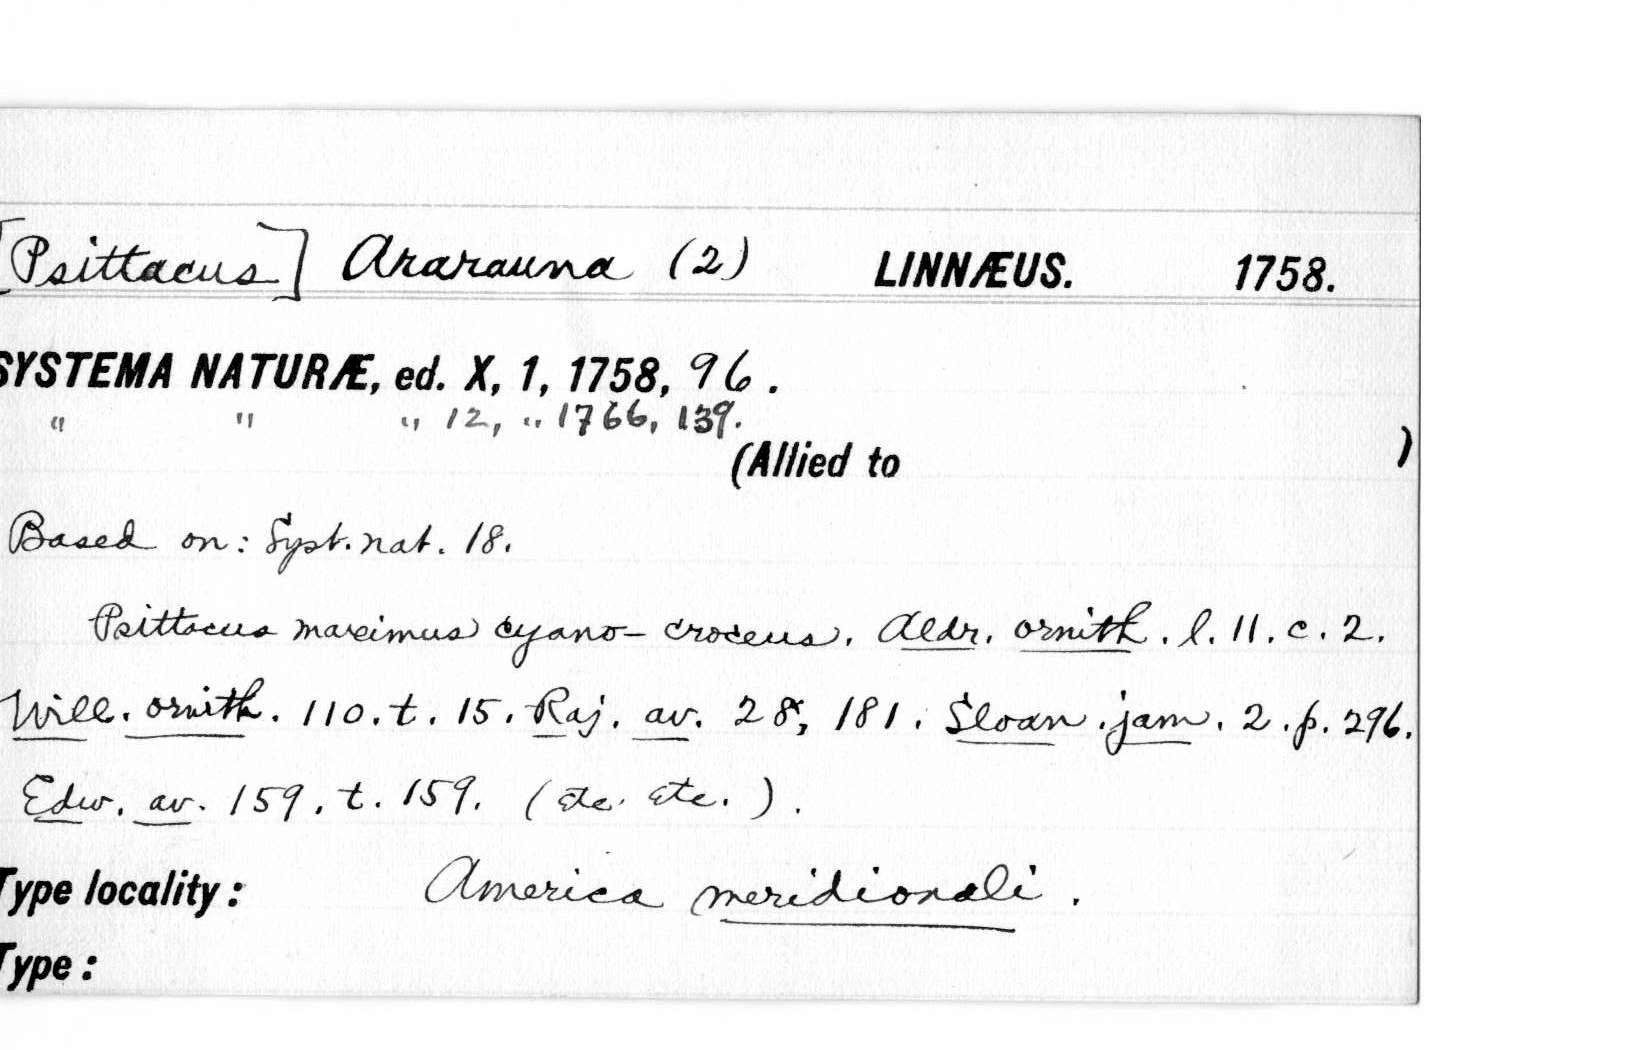 [Psittacus] Ararauna (2) LINNÆUS. 1758.
SYSTEMA NATURÆ, ed. X, 1, 1758, 96.
" " " 12, " 1766, 139.
(Allied to )
Based on: Syst. nat. 18.
Psittacus maximus cyano-croceus. Aldr. ornith. l. 11. c. 2.
Will. ornith. 110. t. 15. Raj. av. 28, 181. Sloan. jam. 2. p. 296.
Edw. av. 159. t. 159. (etc. etc.).
Type locality: America meridionali.
Type: